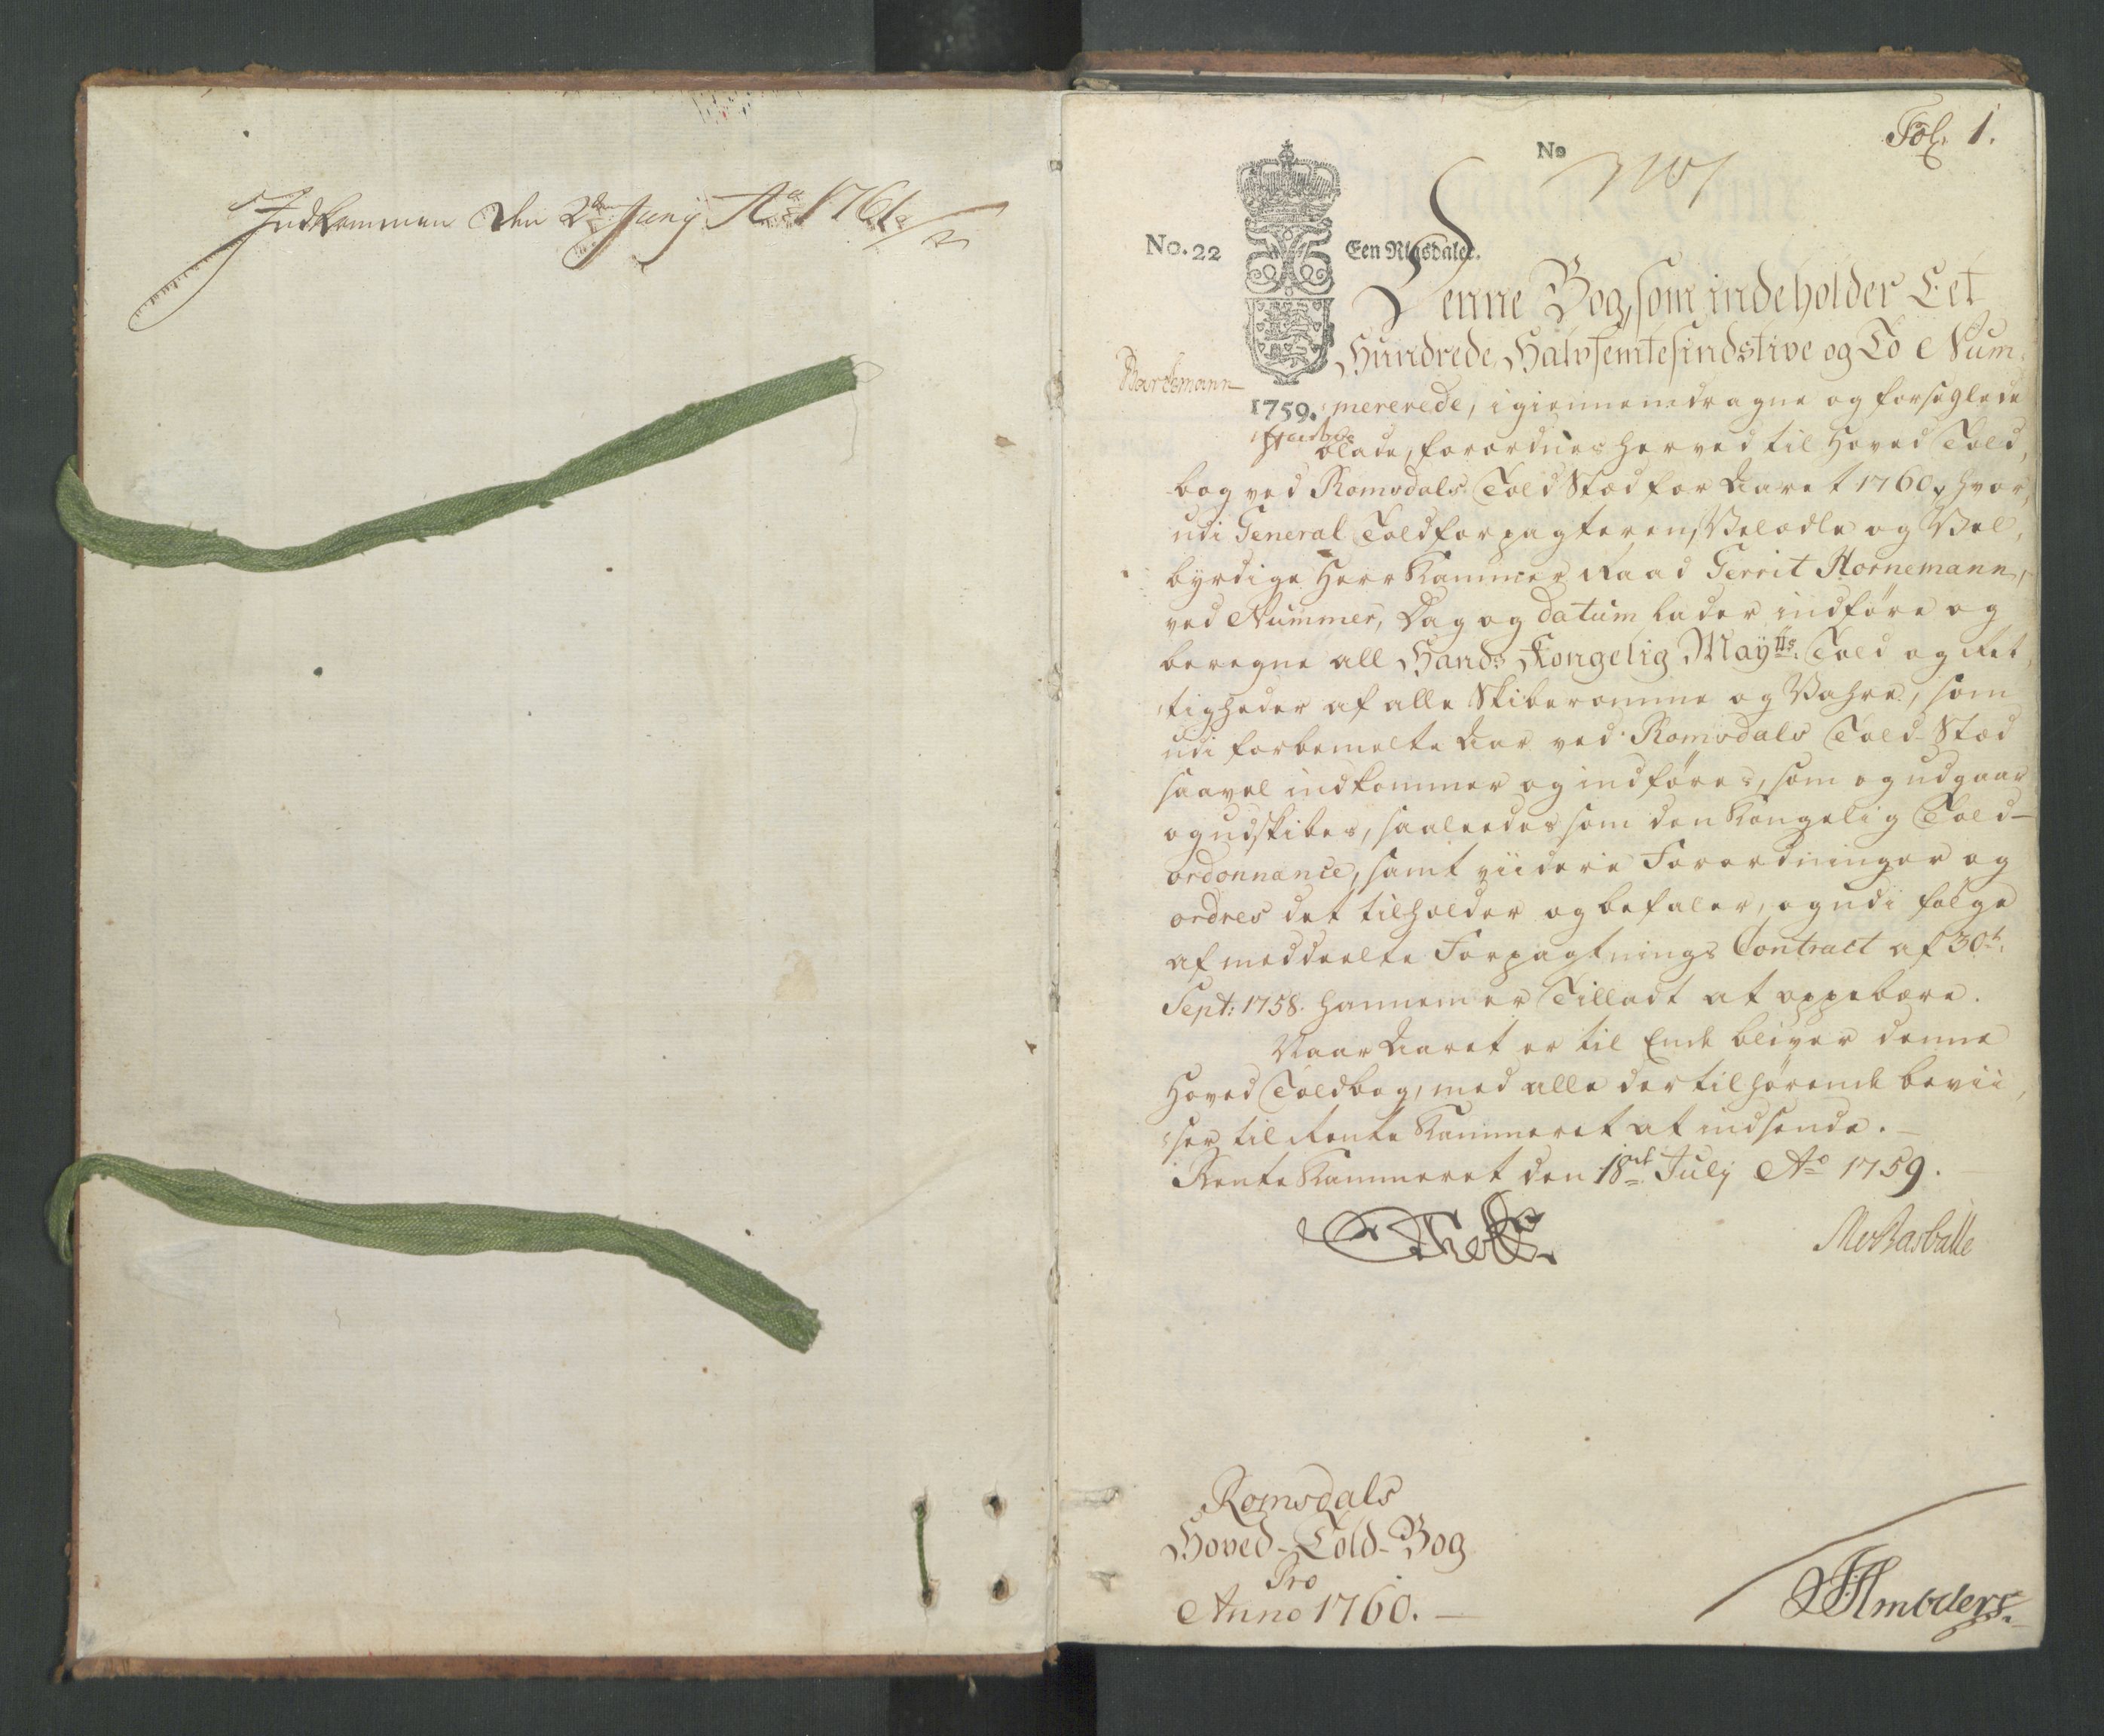 Indkommen den 2den Junij Ao 1761
Fol. 1.
No
No. 22
Een Rigsdaler.
1759.
Denne Bog, som indeholder Eet
Hundrede, Halvfemtesindstive og To Num-
mererede, igiennemdragne og forseglede
blade, forordnes herved til Hoved Told,
bog ved Romsdals Told Stæd for Aaret 1760, hvor,
udi General Toldforpagteren, Velædle og Vel,
byrdige Herr Kammer Raad Gerrit Hornemann,
ved Nummer, Dag og datum lader indføre og
beregne all Hands Kongelig Mayts. Told og Ret,
tigheder af alle Skiberomme og Vahre, som
udi forbemelte Aar ved Romsdals Told-Stæd
saavel indkommer og indføres, som og udgaar
og udskibes, saaleedes som den Kongelig Told-
ordonnance, samt viidere Forordninger og
ordres det tilholder og befaler, og udi følge
af meddeelte Forpagtnings Contract af 30t.
Sept: 1758. hannem er Tilladt at oppebære.
Naar Aaret er til Ende bliver denne
Hoved Toldbog, med alle dertilhørende bevii,
ser til Rente Kammeret at indsende.
Rente Kammeret den 18de July Ao 1759.
Romsdals
Hoved-Told-Bog
Pro
Anno 1760.